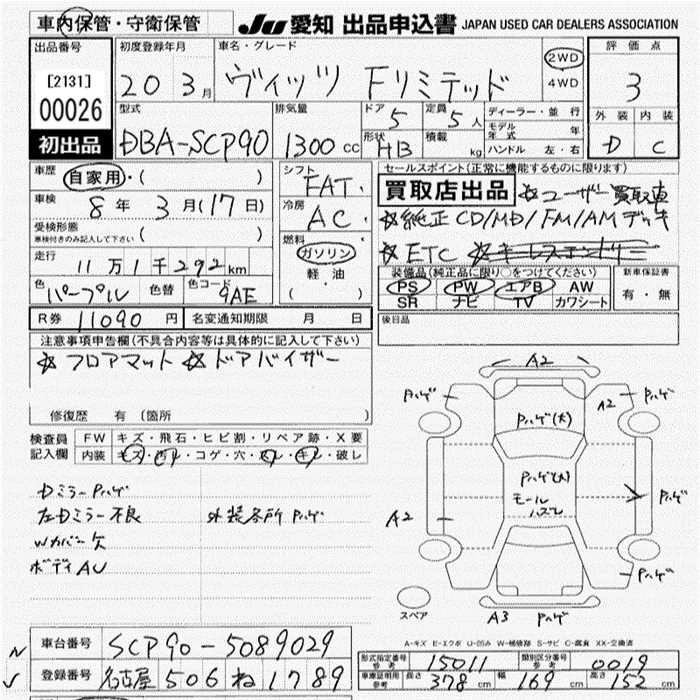 車内保管・守衛保管 JU 愛知 出品申込書 JAPAN USED CAR DEALERS ASSOCIATION
出品番号 初度登録年月 車名・グレード 評価点
[2131] 20 3月 ヴィッツ Fリミテッド 2WD 4WD 3
00026 型式 排気量 ドア 定員 ディーラー・並行 外装 内装
初出品 DBA-SCP90 1300cc 5 5人 モデル年式 年 D C
形状 HB 積載 kg ハンドル 左・右
車歴 自家用・( ) シフト FAT. セールスポイント(正常に機能するものに限ります)
車検 8年 3月(17日) 冷房 AC. 買取店出品 ☆ユーザー買取車
受検形態 ( ) ☆純正CD/MD/FM/AMデッキ
車検付きのみ記入して下さい
走行 11万1千292km 燃料 ガソリン ☆ETC
軽油 装備品(純正品に限り○をつけてください) 新車保証書
色 パープル 色替 色コード 9AE ・( ) PS PW エアB AW 有・無
SR ナビ TV カワシート
R券 11090円 名変通知期限 月 日 後日品
注意事項申告欄(不具合内容等は具体的に記入して下さい)
☆フロアマット ☆ドアバイザー
修復歴 有(箇所 )
検査員記入欄 FW キズ・飛石・ヒビ割・リペア跡・X要
内装 キズ・汚レ・コゲ・穴・スレ・キレ・破レ
DミラーPハゲ
左Dミラー不良 外装各所Pハゲ
Wカバー欠
ボディAU
A2
Pハゲ A2 Pハゲ
Pハゲ(大)
Pハゲ(大) Pハゲ
モールハズレ
A2
Pハゲ
スペア A3 Pハゲ
A-キズ E-エクボ U-凹み W-補修跡 S-サビ C-腐食 XX-交換済
車台番号 SCP90-5089029
型式指定番号参考 15011 類別区分番号参考 0019
登録番号 名古屋 506 ね 1789
車庫証明用参考 長さ 378cm 幅 169cm 高さ 152cm